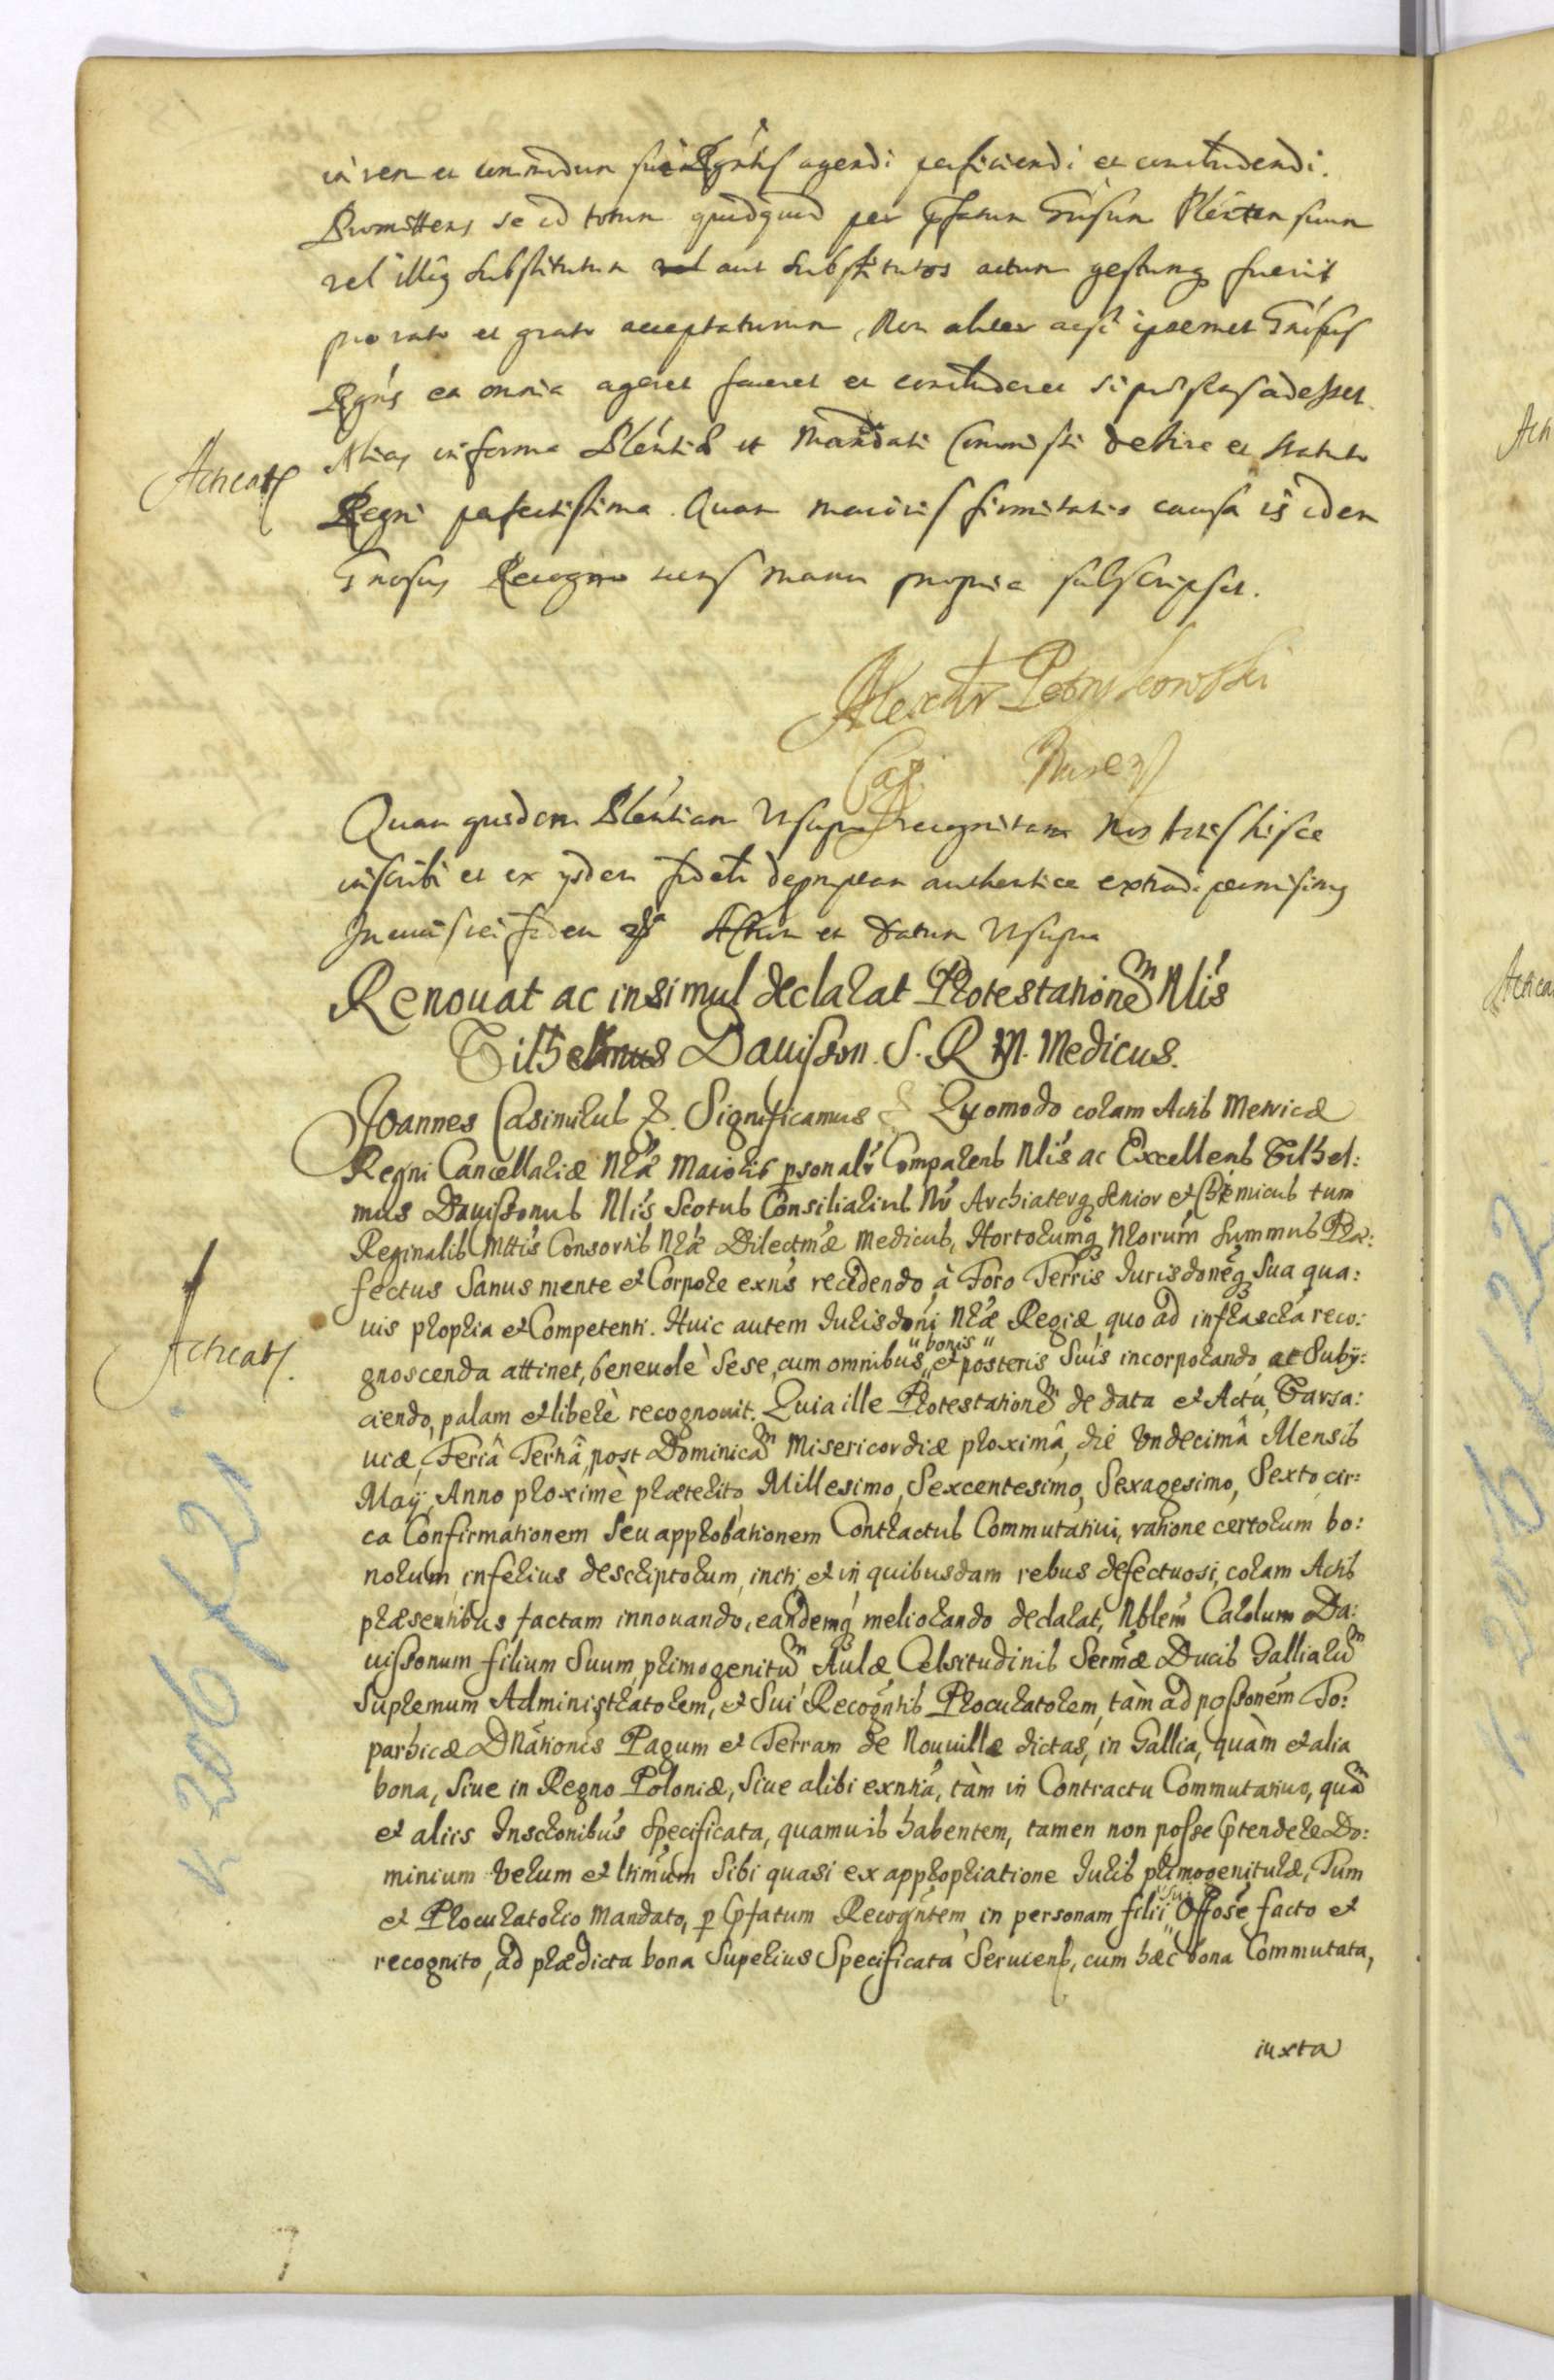 in rem et commodum sui Rgntis agendi perficiendi et concludendi.
Promittens se id totum quidquid per pfatum Gnsum Plen̄ten suum
vel illiq substitutum aut substitutos actum gestumq fuerit
pro rato et grato acceptaturum, Non aliter acsi ipsemet Gnōsus
Rgns ea omnia ageret faceret et concluderet si pns adesset.
Alias in forma Plēntiæ et Mandati Commissi de Jure et Statuto
Acticat
Regni perfectissima. Quam maioris firmitatis causa is idem
Gnosus Recogno scens manu propria subscripsit.
Alexāndr Petrykowski
Quam quidem Plēntiam Vtsupra recognitam Nos Actis hisce
inscribi et ex ysdem fideli depromptam authentice extradi permisimus
In cuius rei fidem & Actum et Datum Vtsupra
Renouat ac insimul declarat Protestationem Nlis
Wilhelmus Dauisson S. R. M. Medicus.
Joannes Casimirus &. Significamus & Quomodo coram Actis Metricæ
Regni Cancellariæ Nrǽ Maioris psonalr Comparens Nlis ac Excellens Wilhel:
mus Dauissonus Nlis Scotus Consiliarius Nr Archiaterq Senior et Chemicus tum
Reginalis Mttis Consortis Nrǽ Dilectmæ Medicus, Hortorumq Nrorum Summus Præ:
fectus Sanus mente et Corpore exns recedendo à Foro Terris Jurisdoneq Sua qua:
uis propria et Competenti. Huic autem Jurisdoni Nrǽ Regiæ, quo ad infrascra reco:
gnoscenda attinet, beneuolè Sese, cum omnibus "bonis" et posteris Suis incorporando, ac Suby:
Acticat.
ciendo, palam et liberè recognouit. Quia ille Protestationem de data et Actu, Warsa:
uiæ, Feriâ Tertiâ, post Dominicam Misericordiæ proximâ, die Vndecimâ Mensis
Maÿ, Anno proximè præterito Millesimo, Sexcentesimo, Sexagesimo, Sexto cir:
ca Confirmationem Seu approbationem Contractus Commutatiui, ratione certorum bo:
norum inferius descriptorum, initi, et in quibusdam rebus defectuosi, coram Actis
præsentibus factam innouando, eandemq meliorando declarat, Nblem Carolum Da:
uissonum filium Suum primogenitum Aulæ Celsitudinis Sermæ Ducis Galliarum
Supremum Administratorem, et Sui Recogntis Procuratorem, tàm ad possonem To:
parhicæ Dnationis Pagum et Terram de Nouuillæ dictas, in Gallia, quàm et alia
bona, Siue in Regno Poloniæ, Siue alibi exntia, tàm in Contractu Commutatiuo, quam
et aliis Inscronibus Specificata, quamuis habentem, tamen non posse ptendere Do:
minium Verum et ltimum Sibi quasi ex appropriatione Juris primogenituræ, Tum
et Procuratorio Mandato, p pfatum Recogntem in personam filii Sui Offose facto et
recognito, ad prædicta bona Superius Specificata Seruiens, cum hæc bona Commutata,
iuxta